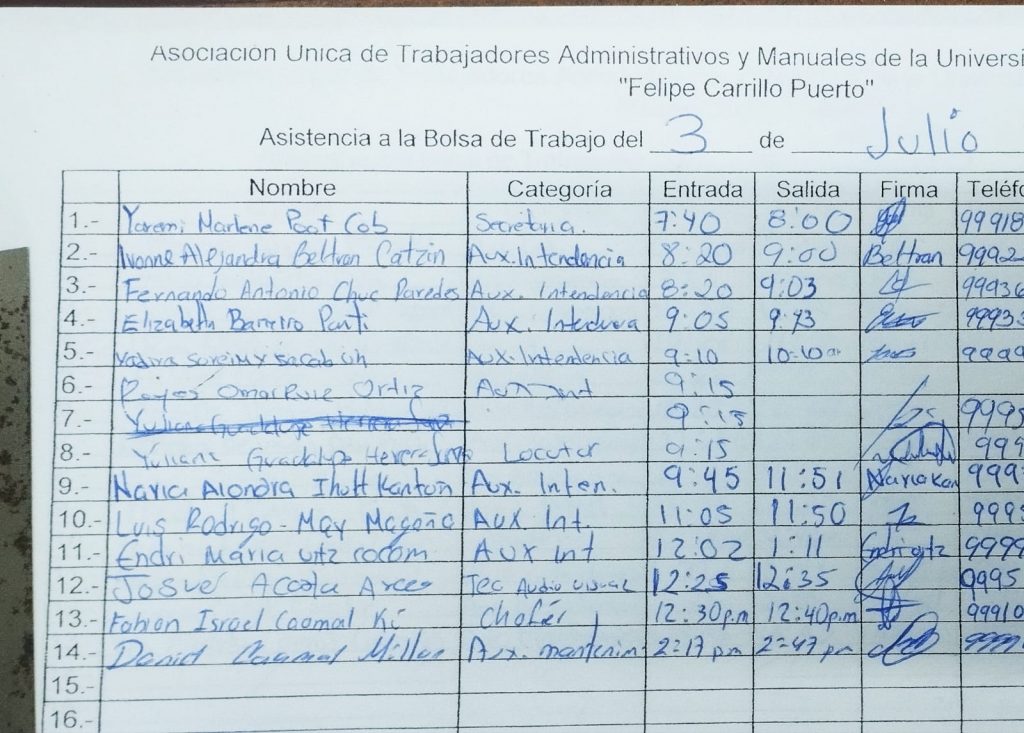 Asociación Única de Trabajadores Administrativos y Manuales de la Universi
"Felipe Carrillo Puerto"
Asistencia a la Bolsa de Trabajo del 3 de Julio
Nombre Categoría Entrada Salida Firma Teléfo
1.- Yaremi Marlene Poot Cob Secretaria. 7:40 8:00 99918
2.- Ivonne Alejandra Beltran Catzin Aux. Intendencia 8:20 9:00 Beltran 9992
3.- Fernando Antonio Chuc Paredes Aux. Intendencia 8:20 9:03 99936
4.- Elizabeth Aux. 9:05 9:43 9993
5.- Aux. Intendencia 9:10 10:10 9999
6.- Omar Ortiz 9:15
7.- 9:15 9995
8.- Guadalupe Locutor 9:15 999
9.- Alondra Aux. Inten. 9:45 11:51 999
10.- Luis Rodrigo May Magaña Aux Int. 11:05 11:50 999
11.- Endri María Utz cocom Aux Int 12:02 1:11 9999
12.- Josué Acosta Arceo Tec Audio visual 12:25 12:35 9995
13.- Fabian Israel Caamal Ki Chofér 12:30p.m 12:40p.m 99910
14.- Daniel Caamal Millan Aux. mantenim 2:17 pm 2:47 pm
15.-
16.-